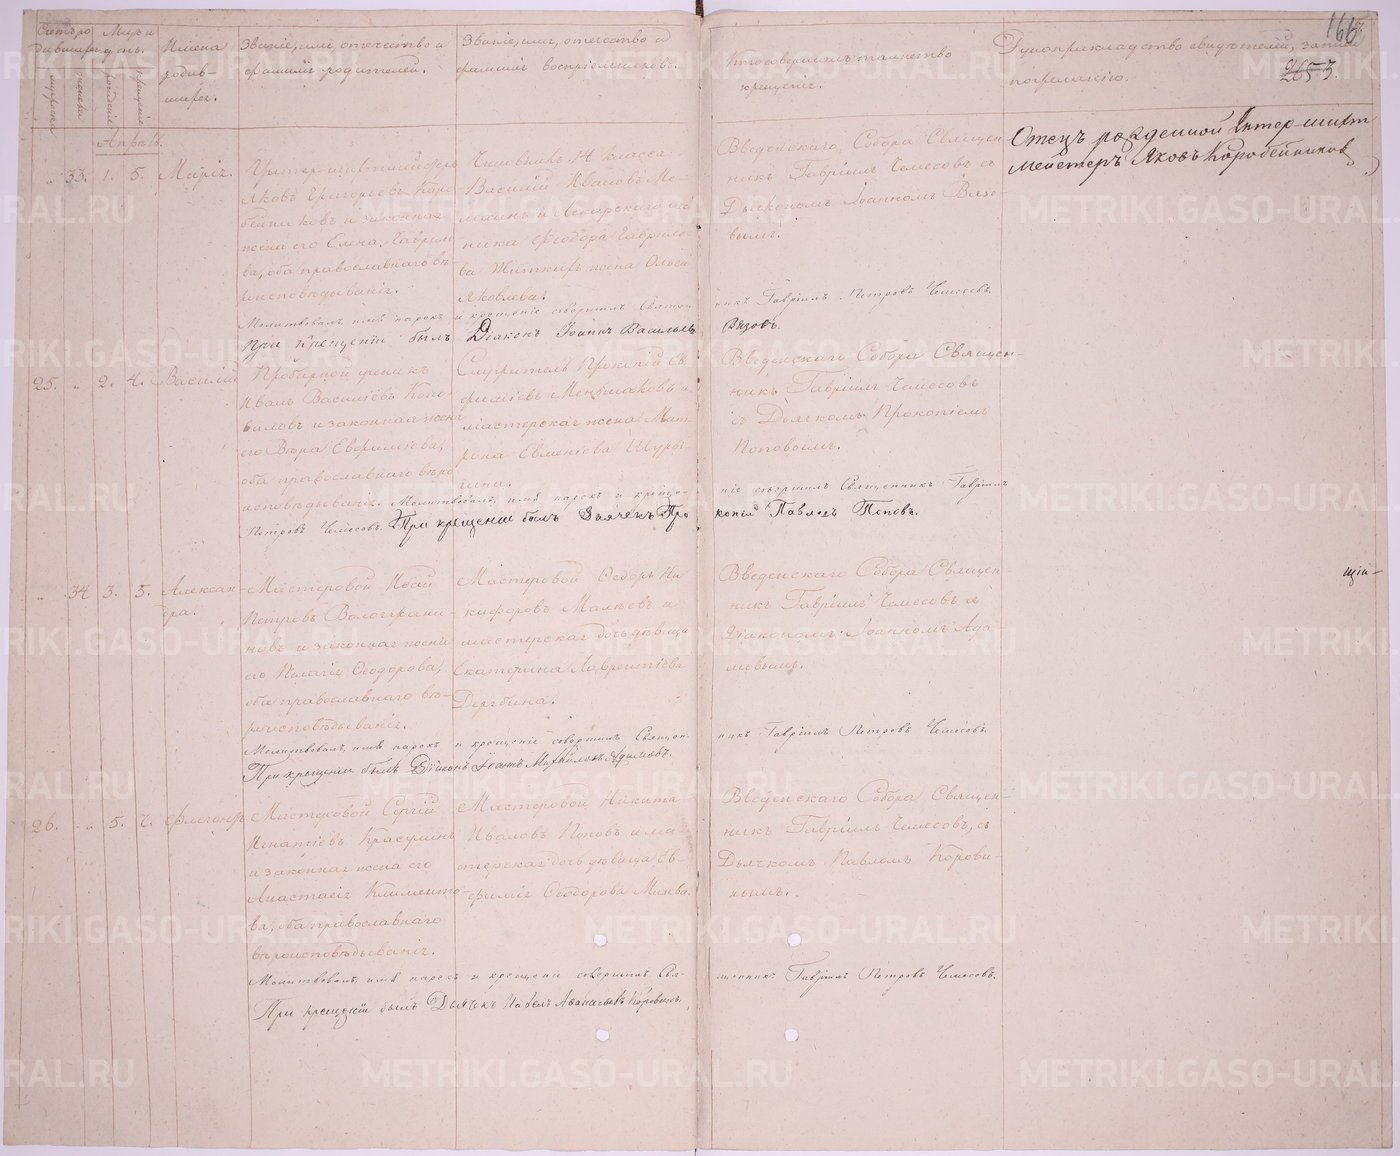 166
2653.
Счетъ ро
Мѣсяцъ и
Имена
родив-
шихся.
Званіе, имя, отечество и
фамилія родителей.
Званіе, имя, отечество и
фамилія воспріемниковъ.
Кто совершилъ таинство
крещенія.
Рукоприкладство свидѣтелей, записи
по желанію.
Апрѣль.
33. 1. 5. Марія.
Яковъ Григорьевъ Коро
бейниковъ и законная
жена его Елена Гаврило
ва, оба православнаго вѣ
роисповѣданія.
Чиновникъ 14 класса
Василій Ивановъ
Ѳеодора Гаврило
ва жена Ольга
Яковлева.
Введенскаго Собора Священ
никъ Гавріилъ Чемесовъ съ
Діакономъ Іоанномъ Вязо
вымъ.
Отецъ рожденной Унтер-шихт
мейстеръ Яковъ Коробейниковъ
Молитвовалъ, имя нарекъ и крещеніе совершилъ Священ
никъ Гавріилъ Петровъ Чемесовъ.
При крещеніи былъ Діаконъ Іоаннъ Васильевъ
Вязовъ.
25. 2. 4. Василій
Пробирной ученикъ
Иванъ Василіевъ Коно
валовъ и законная жена
его Вѣра Евфиміева,
оба православнаго вѣро
исповѣданія.
Служитель Прокопій Ев
фиміевъ Меньшиковъ и
мастерская жена Мат
рона Евменіева Шуры
гина.
Введенскаго Собора Священ-
никъ Гавріилъ Чемесовъ
съ Дьячкомъ Прокопіемъ
Поповымъ.
Молитвовалъ, имя нарекъ и креще-
ніе совершилъ Священникъ Гавріилъ
Петровъ Чемесовъ. При крещеніи былъ Дьячекъ Про
копій Павловъ Поповъ.
34 3. 5. Алексан-
дра.
Мастеровой
Петровъ Вологжани-
новъ и законная жена
его Пелагія Ѳеодорова,
оба православнаго вѣ-
роисповѣданія.
Мастеровой Ѳедоръ Ни
кифоровъ Малѣевъ и
мастерская дочь дѣвица
Екатерина Лаврентіева
Дерябина.
Введенскаго Собора Священ-
никъ Гавріилъ Чемесовъ и
Діакономъ Іоанномъ Ада-
мовымъ.
щій-
Молитвовалъ, имя нарекъ и крещеніе совершилъ Священ-
никъ Гавріилъ Петровъ Чемесовъ.
При крещеніи былъ Діаконъ Іоаннъ Михайловъ Адамовъ.
26. 5. 7. Флегонтъ
Мастеровой Сергій
Игнатіевъ
и законная жена его
Анастасія Клименто-
ва, оба православнаго
вѣроисповѣданія.
Мастеровой Никита
Ивановъ Поповъ и ма-
стерская дочь дѣвица Ев-
фимія Ѳеодорова
Введенскаго Собора Священ-
никъ Гавріилъ Чемесовъ, съ
Дьячкомъ Павломъ Корови-
нымъ.
Молитвовалъ, имя нарекъ и крещеніе совершилъ Свя-
щенникъ Гавріилъ Петровъ Чемесовъ.
При крещеніи былъ Дьячекъ Павелъ Аѳанасьевъ Коровинъ.
METRIKI.GASO-URAL.RU